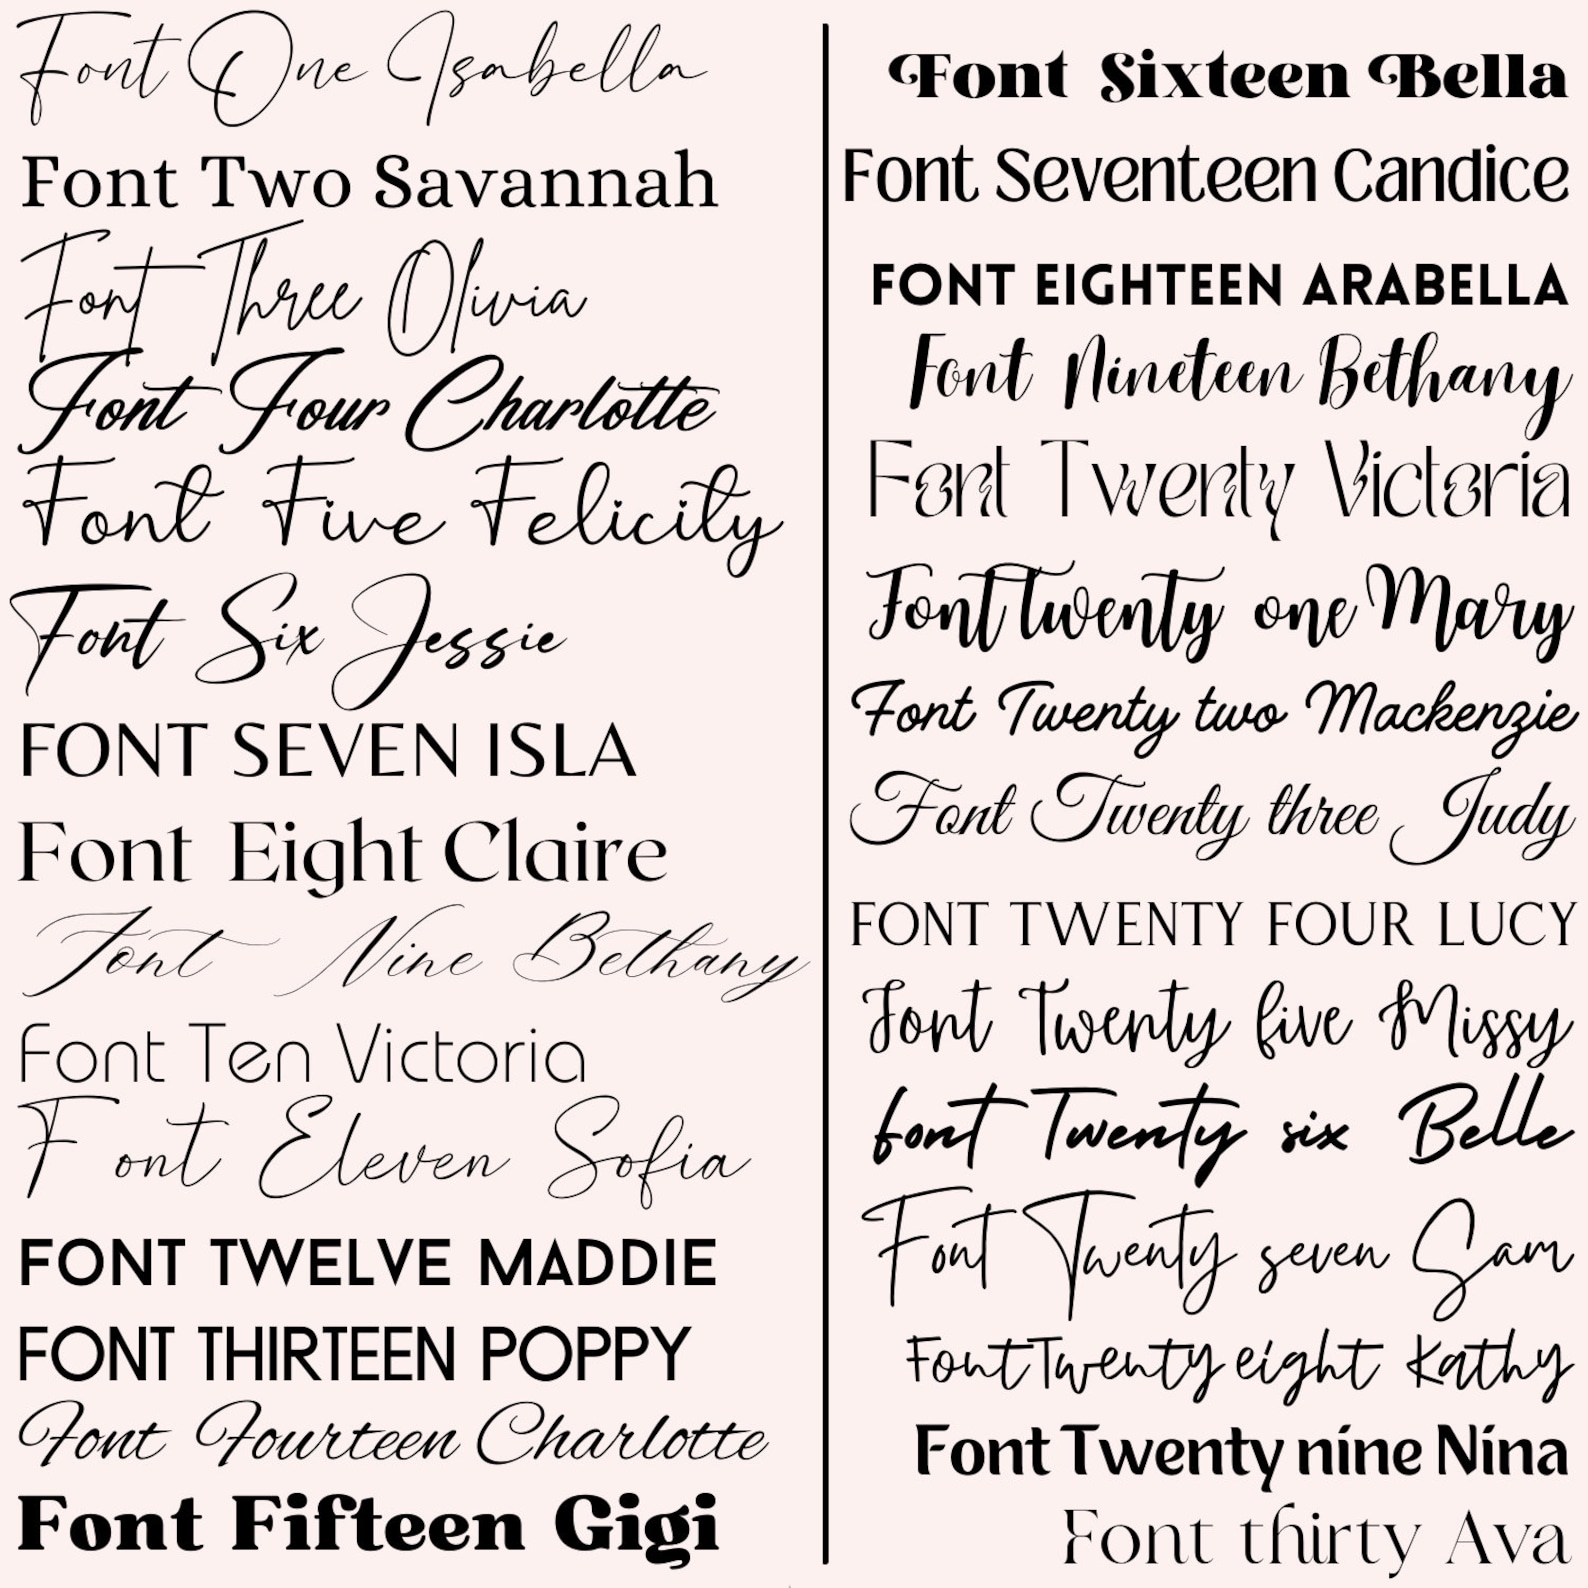 Font One Isabella
Font Two Savannah
Font Three Olivia
Font Four Charlotte
Font Five Felicity
Font Six Jessie
FONT SEVEN ISLA
Font Eight Claire
Font Nine Bethany
Font Ten Victoria
Font Eleven Sofia
FONT TWELVE MADDIE
FONT THIRTEEN POPPY
Font Fourteen Charlotte
Font Fifteen Gigi
Font Sixteen Bella
Font Seventeen Candice
FONT EIGHTEEN ARABELLA
Font Nineteen Bethany
Font Twenty Victoria
Font Twenty one Mary
Font Twenty two Mackenzie
Font Twenty three Judy
FONT TWENTY FOUR LUCY
Font Twenty five Missy
font Twenty six Belle
Font Twenty seven Sam
Font Twenty eight Kathy
Font Twenty nine Nina
Font thirty Ava